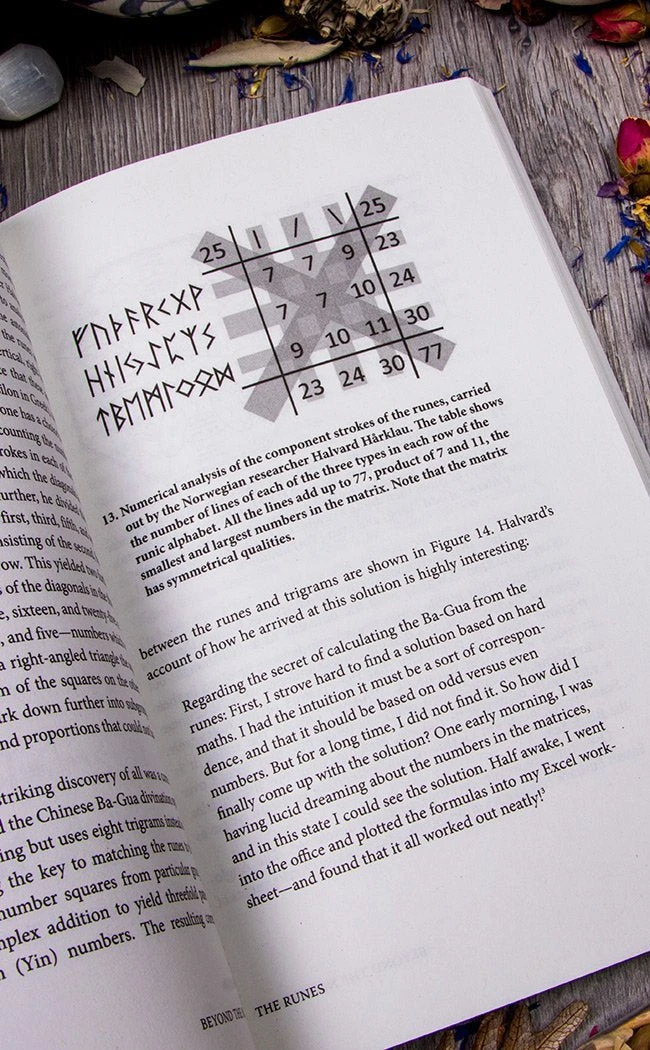 vertical, rig
counting the
rokes in each of
which the diagon
further, he divided
first, third, fifth, an
nsisting of the second
ow. This yielded two
s of the diagonals in the
e, sixteen, and twenty-five
, and five—numbers wh
a right-angled triangle the
m of the squares on the oth
rk down further into subg
nd proportions that could
striking discovery of all was a
d the Chinese Ba-Gua divination
ing but uses eight trigrams instead
g the key to matching the runes
number squares from particular
mplex addition to yield threefold
n (Yin) numbers. The resulting
BEYOND THE
25 | / \ 25
ᚠᚢᚦᚨᚱᚲᚷᚹ 7 7 9 23
ᚺᚾᛁᛃᛇᛈᛉᛊ 7 7 10 24
ᛏᛒᛖᛗᛚᛜᛟᛞ 9 10 11 30
23 24 30 77
13. Numerical analysis of the component strokes of the runes, carried
out by the Norwegian researcher Halvard Hårklau. The table shows
the number of lines of each of the three types in each row of the
runic alphabet. All the lines add up to 77, product of 7 and 11, the
smallest and largest numbers in the matrix. Note that the matrix
has symmetrical qualities.
between the runes and trigrams are shown in Figure 14. Halvard's
account of how he arrived at this solution is highly interesting:
Regarding the secret of calculating the Ba-Gua from the
runes: First, I strove hard to find a solution based on hard
maths. I had the intuition it must be a sort of correspon-
dence, and that it should be based on odd versus even
numbers. But for a long time, I did not find it. So how did I
finally come up with the solution? One early morning, I was
having lucid dreaming about the numbers in the matrices,
and in this state I could see the solution. Half awake, I went
into the office and plotted the formulas into my Excel work-
sheet—and found that it all worked out neatly!³
THE RUNES